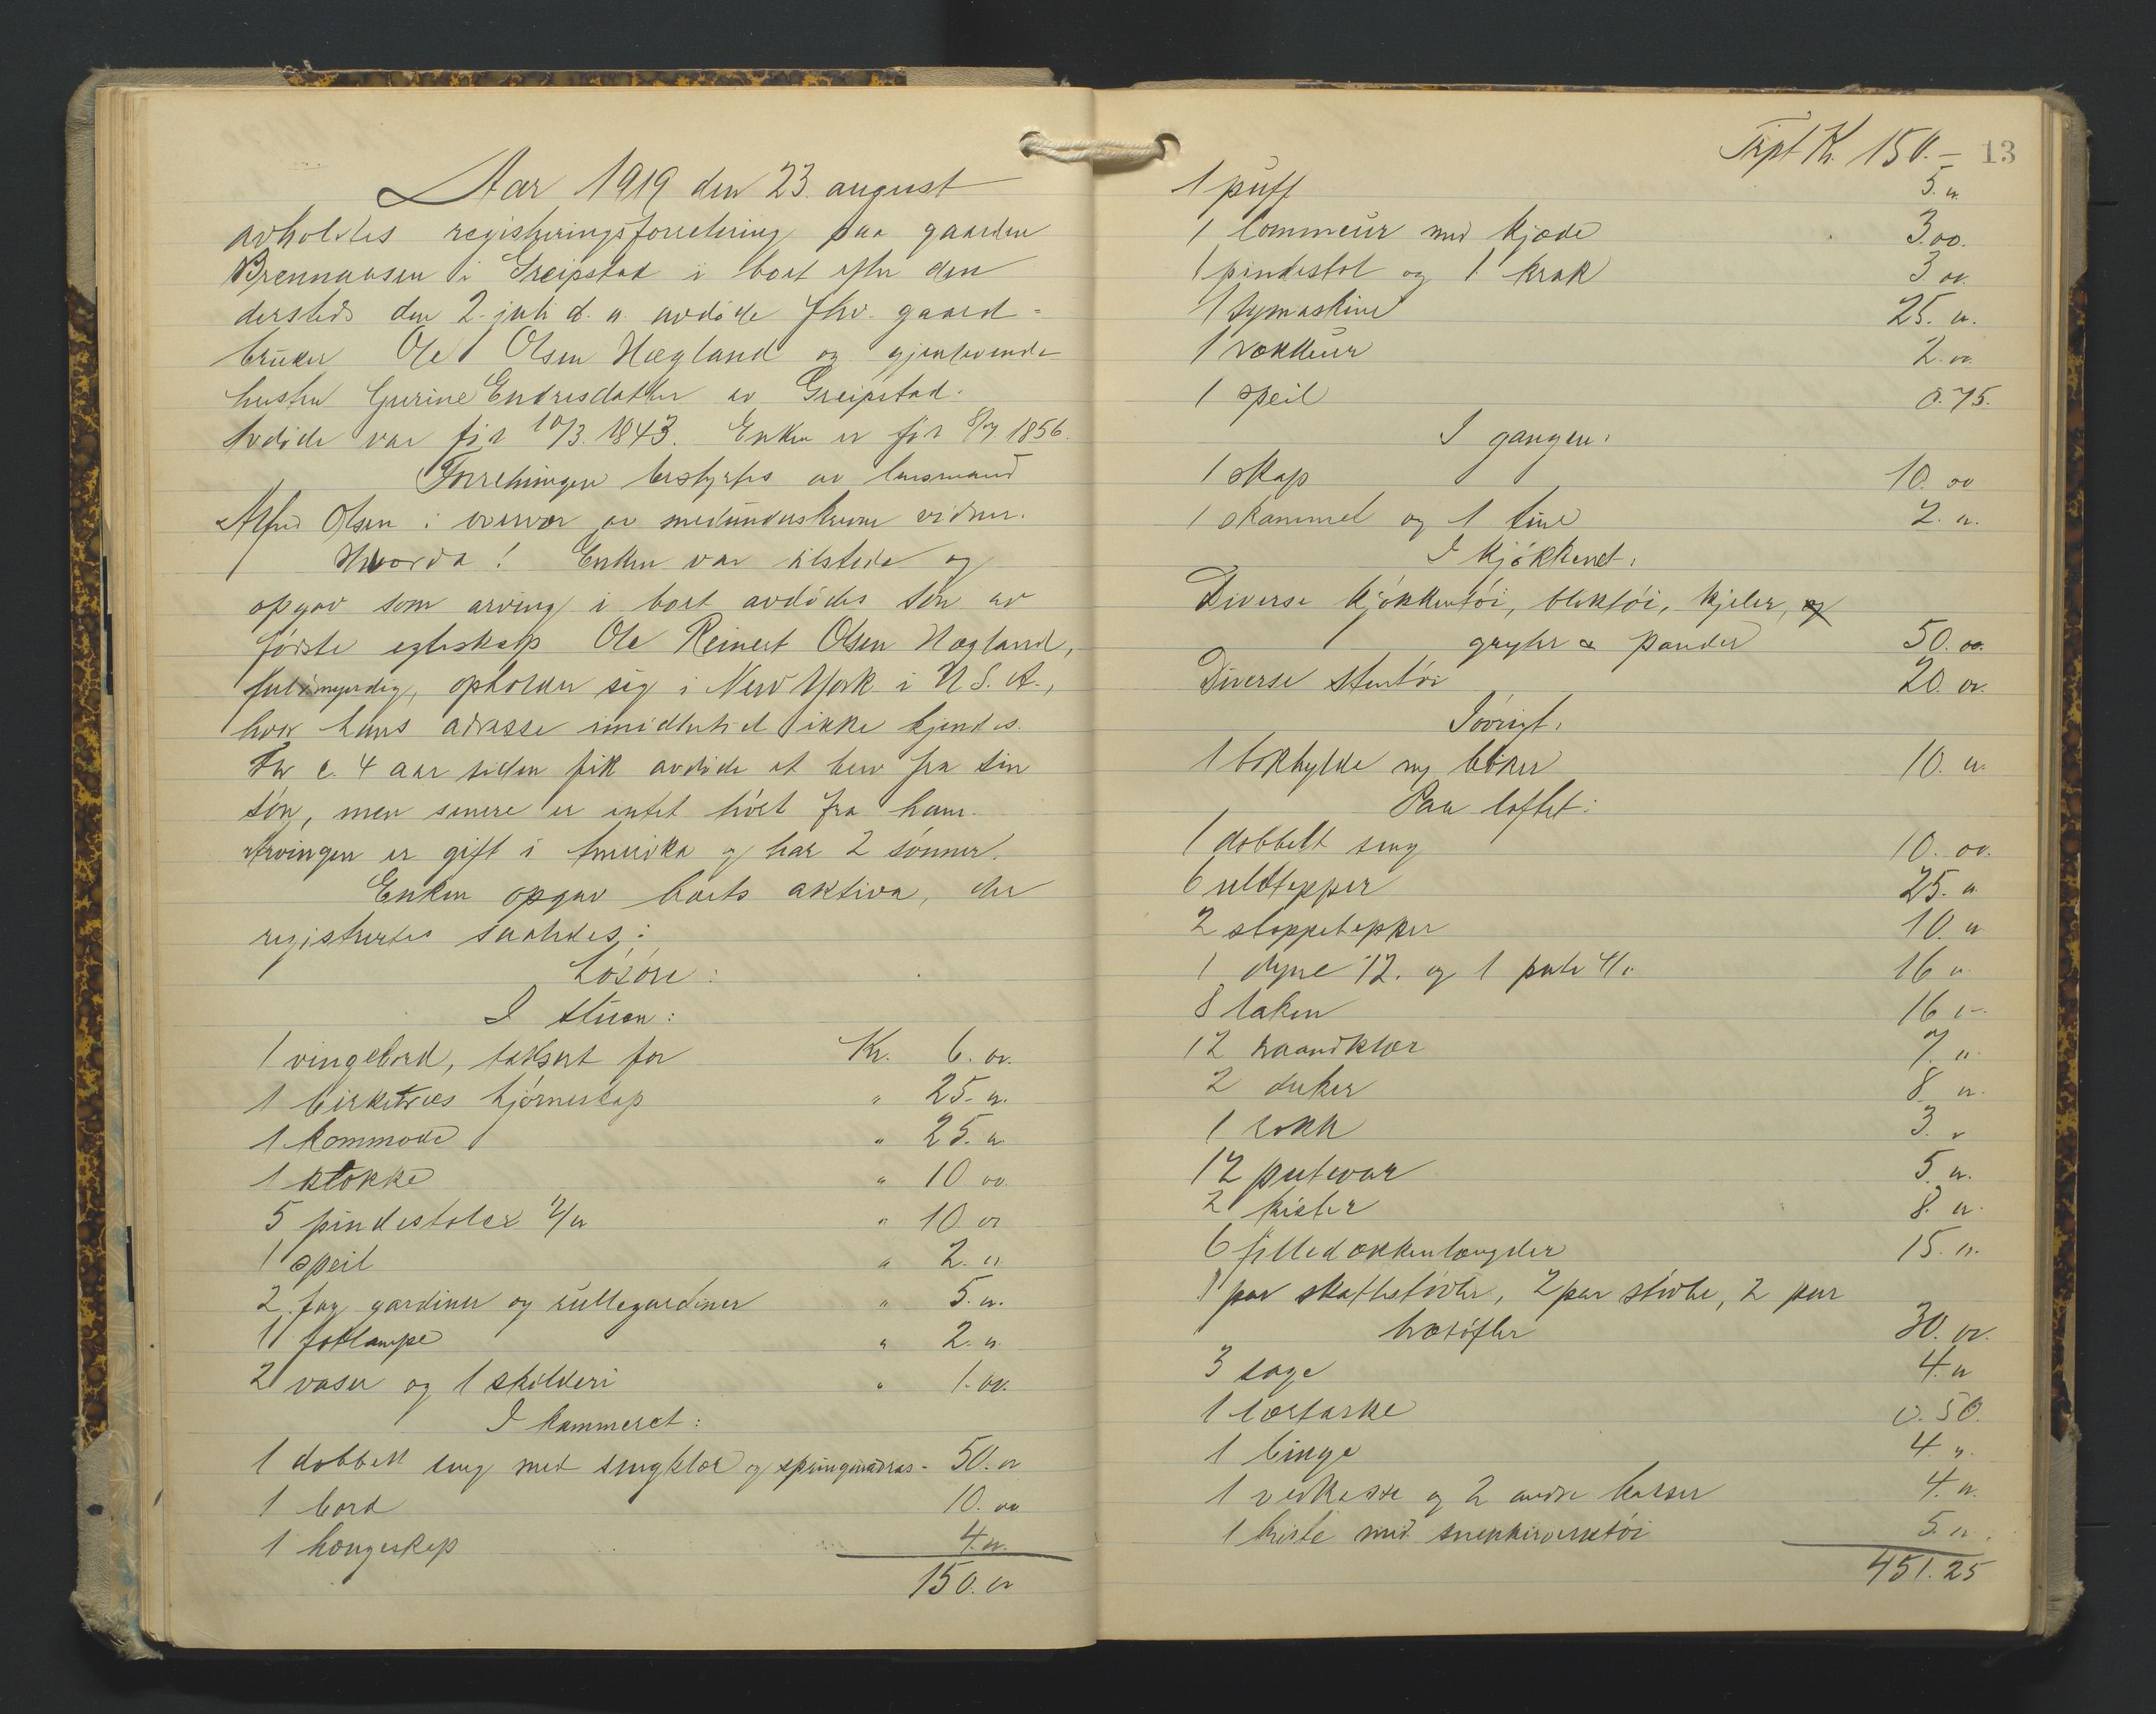 Aar 1919 den 23. august
avholdtes registreringsforretning paa gaarden
Brennaasen i Greipstad i boet efter den
dersteds den 2. juli d. a. avdøde fhv. gaard-
bruker Ole Olsen Hægland og gjenlevende
hustru Gurine Endresdatter av Greipstad.
Avdøde var fød 10/3 1843. Enken er fød 8/7 1856.
Forretningen bestyrtes av lensmand
Alfred Olsen i overvær av medunderskrevne vidner.
Hvorda! Enken var tilstede og
opgav som arving i boet avdødes søn av
første egteskap Ole Reinert Olsen Hægland,
fuldmyndig, opholder sig i New York i U.S.A.,
hvor hans adresse imidlertid ikke kjendes.
For c. 4 aar siden fik avdøde et brev fra sin
søn, men senere er intet hørt fra ham.
Arvingen er gift i Amerika og har 2 sønner.
Enken opgav boets aktiva, der
registrertes saaledes:
Løsøre:
I stuen:
1 vingebord, taksert for Kr. 6. 00.
1 birketræs hjørneskap " 25. 00.
1 kommode " 25. 00.
1 klokke " 10 00.
5 pindestoler 2/00 " 10. 00
1 speil " 2. 00
2 fag gardiner og rullegardiner " 5. 00.
1 fotlampe " 2. 00.
2 vaser og 1 skilderi " 1. 00.
I kammeret:
1 dobbelt seng med sengklær og springmadras - 50. 00
1 bord 10. 00
1 hængeskap 4. 00.
150. 00
Trpt Kr. 150. - 13
1 puff 5. 00
1 lommeur med kjæde 3. 00.
1 pindestol og 1 krak 3 00.
1 symaskine 25. 00.
1 vækkeur 2. 00.
1 speil 0. 75.
I gangen:
1 skap 10. 00
1 skammel og 1 tine 2. 00.
I kjøkkenet:
Diverse kjøkkentøi, bliktøi, kjeler, og
gryter & pander 50. 00.
Diverse stentøi 20. 00.
Iøvrigt:
1 bokhylde og bøker 10. 00.
Paa loftet:
1 dobbelt seng 10. 00.
6 uldtepper 25. 00
2 stoppetepper 10. 00
1 dyne 12. og 1 pute 4/00 16 00
8 laken 16 00
12 haandklær 7. 00
2 duker 8 00.
1 rokk 3. 00
12 putevar 5. 00.
2 kister 8. 00
6 filledækkenlængder 15. 00.
1 par skaftestøvler, 2 par støvle, 2 par
trætøfler 30. 00.
3 sage 4. 00
1 lærtaske 0. 50.
1 binge 4 00.
1 vedkasse og 2 andre kasser 4. 00.
1 kiste med snekkerverktøi 5. 00.
451. 25